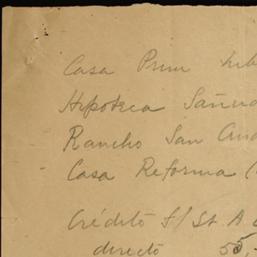 Casa Prim
Hipoteca
Rancho San
Casa Reforma (
Crédito f/ St A
directo 55,